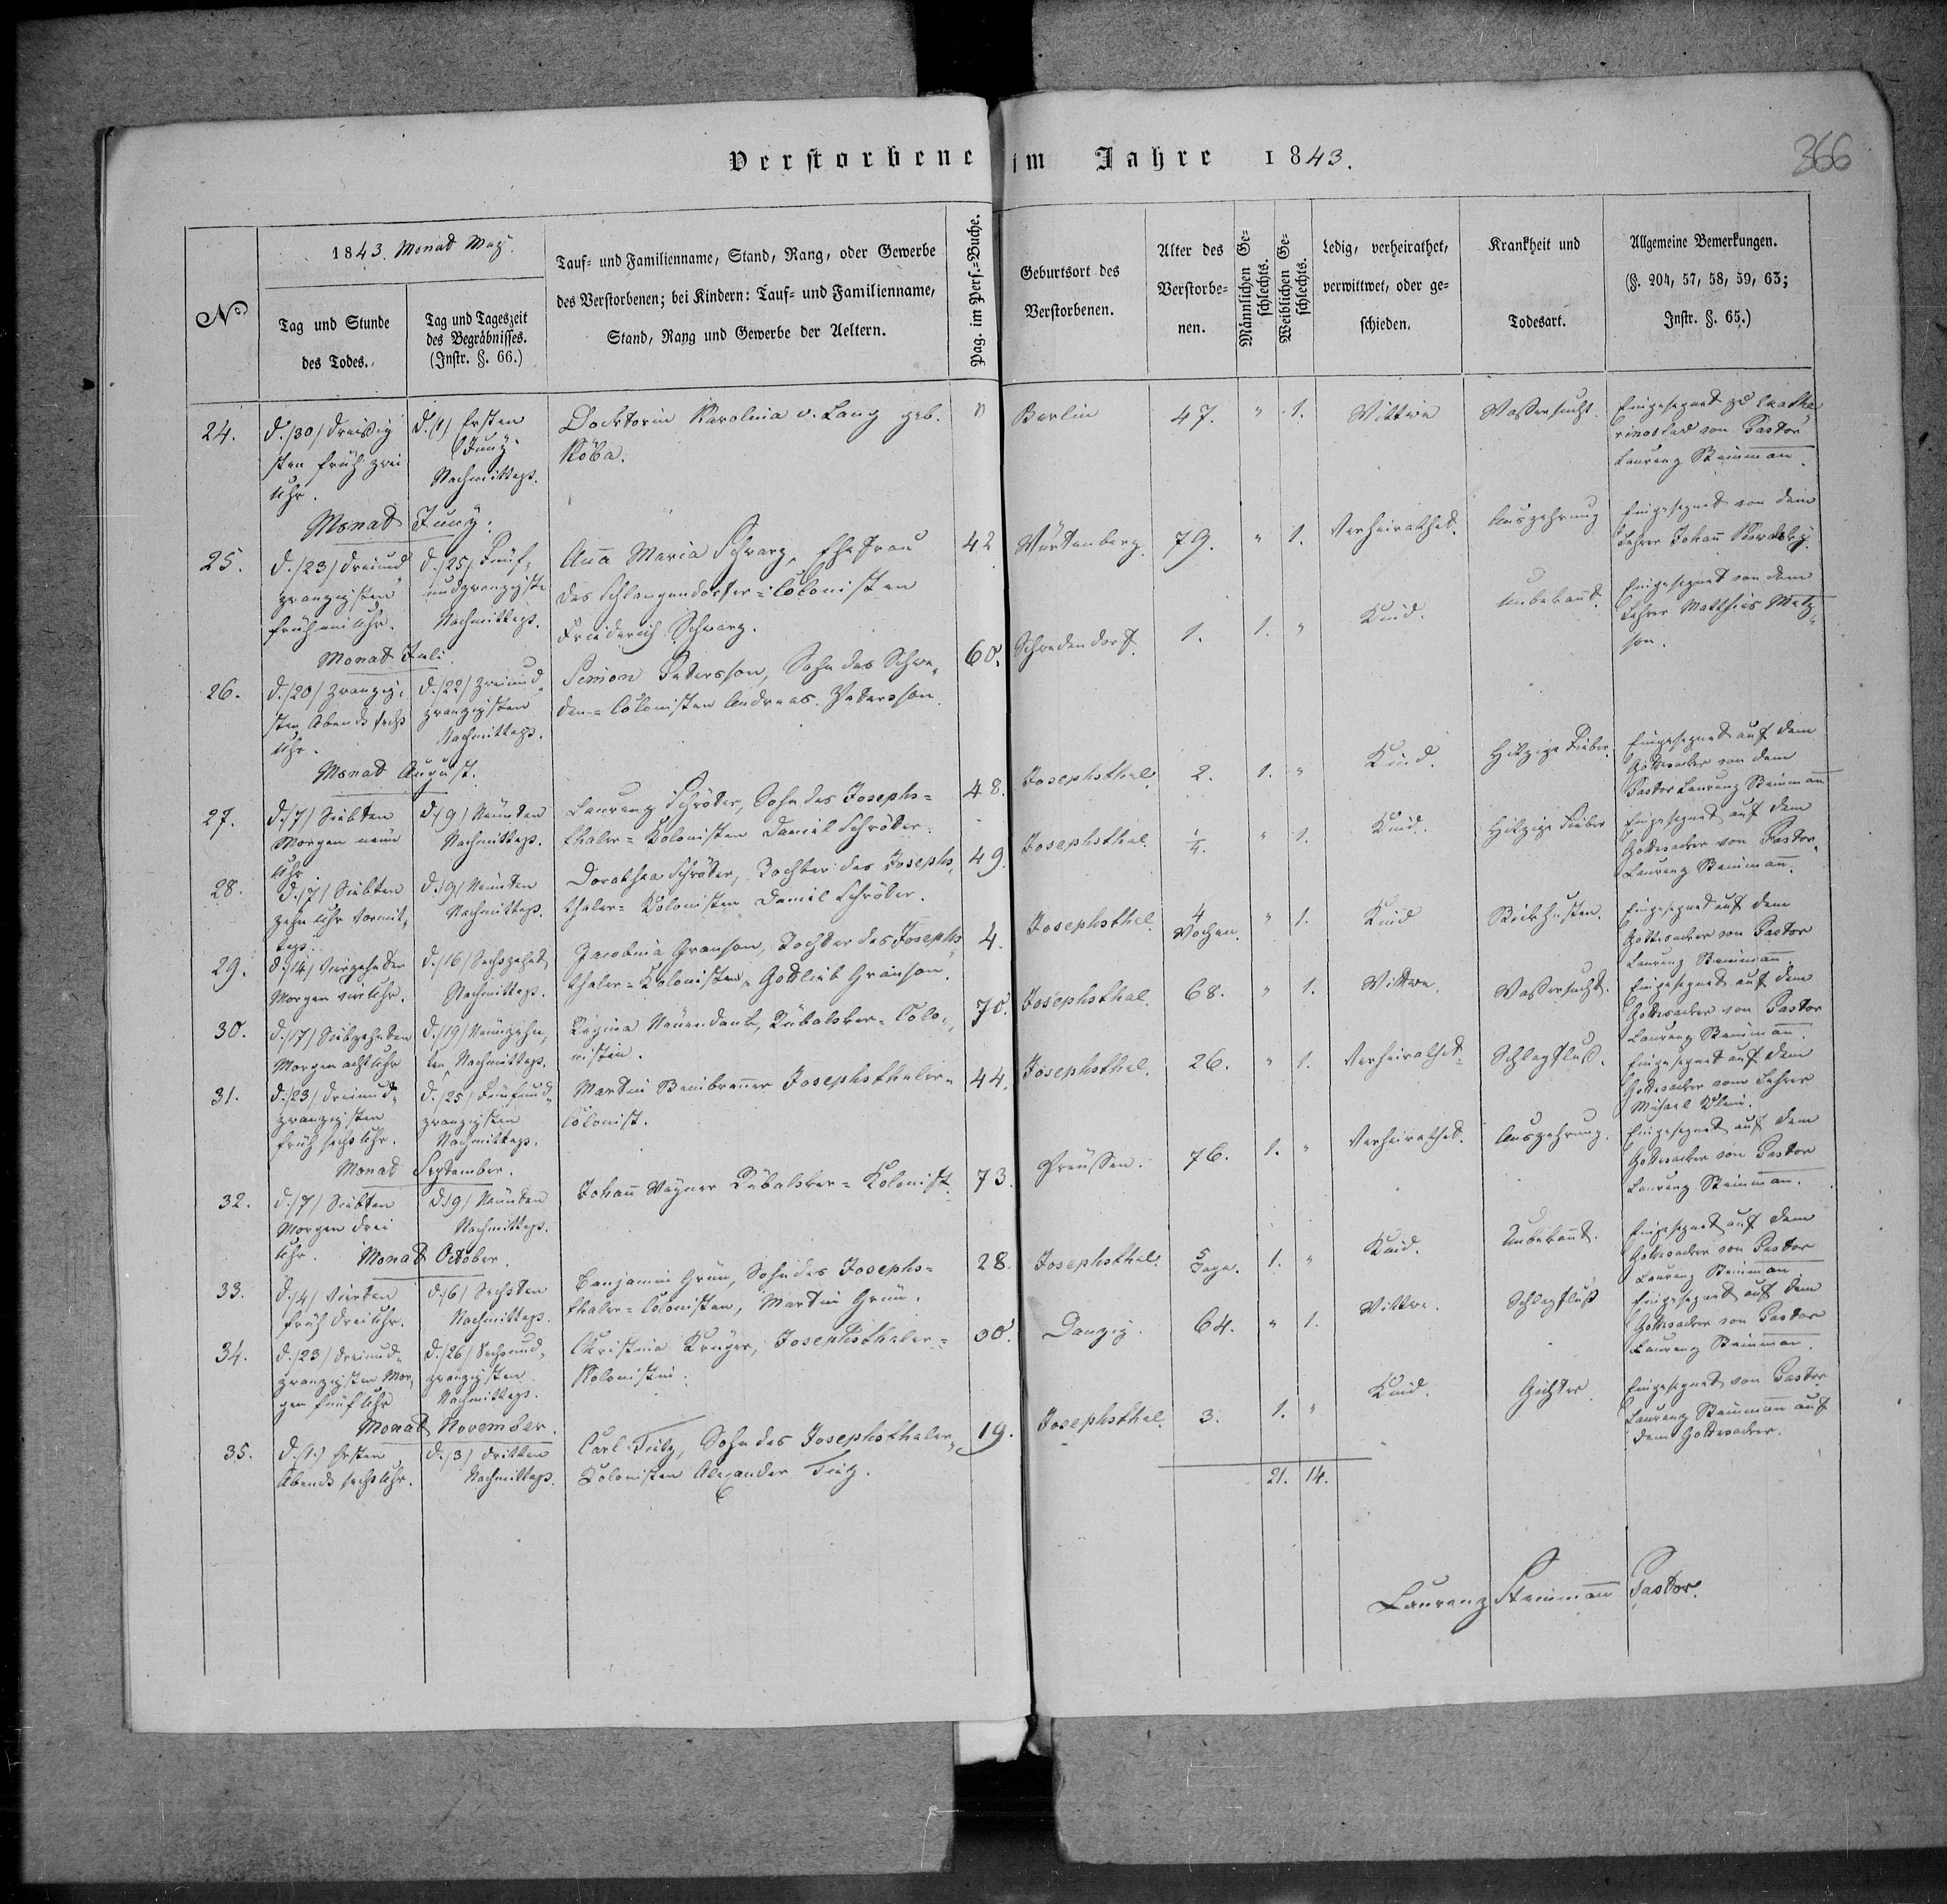 Verstorbene im Jahre 1843.
366
N°
1843. Monat May.
Tag und Stunde
des Todes.
Tag und Tageszeit
des Begräbnisses.
(Instr. §. 66.)
Tauf- und Familienname, Stand, Rang, oder Gewerbe
des Verstorbenen; bei Kindern: Tauf- und Familienname,
Stand, Rang und Gewerbe der Aeltern.
Pag. im Pers.-Buche.
Geburtsort des
Verstorbenen.
Alter des
Verstorbe-
nen.
Männlichen Ge-
schlechts.
Weiblichen Ge-
schlechts.
Ledig, verheirathet,
verwittwet, oder ge-
schieden.
Krankheit und
Todesart.
Allgemeine Bemerkungen.
(§. 204, 57, 58, 59, 63;
Instr. §. 65.)
24.
d. /30/ dreißig
sten früh zwei
Uhr.
d. /1/ Ersten
Juny
Nachmittags.
Docktorin Karolina v. Lang geb.
Köba.
"
Berlin
47.
"
1.
Wittwe
Wassersucht.
Eingesegnet zu Ekathe„
rinoslav von Pastor
Laurenz Steinman.
Monat Juny.
25.
d. /23/ dreiund
zwanzigsten
früh ein Uhr.
d. /25/ Fünf„
undzwanzigste
Nachmittags.
Anna Maria Schwarz, Ehefrau
des Schlangendorfer=Colonisten
Friederich Schwarz.
42
Würtenberg.
79.
"
1.
Verheirathet.
Auszehrung
Eingesegnet von dem
Lehrer Johann Kowalsky.
Monat Juli.
26.
d. /20/ zwanzig„
sten Abends sechs
Uhr.
d. /22/ zweiund„
zwanzigsten
Nachmittags.
Simon Petersson, Sohn des Schwe„
den=Colonisten Andreas Petersson.
60.
Schwedendorf.
1.
1.
"
Kind.
Unbekannt.
Eingesegnet von dem
Lehrer Matthies Matz„
son.
Monat August.
27.
d. /7/ Siebten
Morgen neun
Uhr
d. /9/ Neunten
Nachmittags.
Laurenz Schröder, Sohn des Josephs=
thaler=Kolonisten Daniel Schröder.
48.
Josephsthal.
2.
1.
"
Kind.
Hitzige Fieber.
Eingesegnet auf dem
Gottesacker von dem
Pastor Laurenz Steinmann
28.
d. /7/ Siebten
zehn Uhr Vormit„
tags.
d. /9/ Neunten
Nachmittags.
Dorothea Schröder, Tochter des Josephs„
thaler=Kolonisten Daniel Schröder.
49.
Josephsthal.
1/4.
"
1.
Kind.
Hitzige Fieber
Eingesegnet auf dem
Gottesacker von Pastor
Laurenz Steinmann.
29.
d. /14/ Vierzehnten
Morgen vier Uhr.
d. /16/ Sechszehnt
Nachmittags.
Jacobina Granson, Tochter des Josephs„
thaler=Kolonisten, Gottlieb Granson.
4.
Josephsthal.
4
Wochen.
"
1.
Kind
Stickhusten.
Eingesegnet auf dem
Gottesacker von Pastor
Laurenz Steinmann.
30.
d. /17/ Siebzehnten
Morgen acht Uhr
d. /19/ Neunzehn„
ten Nachmittags.
Regina Neuendank, Rübalsker=Colo„
nistin.
70.
Josephsthal.
68.
"
1.
Wittwe.
Wassersucht.
Eingesegnet auf dem
Gottesacker von Pastor
Laurenz Steinmann.
31.
d. /23/ dreiund„
zwanzigsten
früh sechs Uhr.
d. /25/ Fünfund„
zwanzigsten
Nachmittags.
Martin Beinbrenner Josephsthaler=
Colonist.
44.
Josephsthal.
26.
"
1.
Verheirathet.
Schlagfluß.
Eingesegnet auf dem
Gottesacker vom Lehrer
Michael Klein.
Monat September.
32.
d. /7/ Siebten
Morgen drei
Uhr.
d. /9/ Neunten
Nachmittags.
Johann Wagner Rübalsker=Kolonist.
73.
Preußen.
76.
1.
"
Verheirathet.
Auszehrung.
Eingesegnet auf dem
Gottesacker von Pastor
Laurenz Steinman.
Monat October.
33.
d. /4/ Vierten
früh drei Uhr.
d. /6/ Sechsten
Nachmittags.
Benjamin Grün, Sohn des Josephs=
thaler=Colonisten, Martin Grün.
28.
Josephsthal.
5
Tage.
1.
"
Kind.
Unbekannt.
Eingesegnet auf dem
Gottesacker von Pastor
Laurenz Steinman
34.
d. /23/ dreiund„
zwanzigsten Mor„
gen fünf Uhr
d. /26/ Sechsund„
zwanzigsten
Nachmittags.
Christina Krüger, Josephsthaler=
Kolonistin.
30.
Danzig.
64.
"
1.
Wittwe.
Schlagfluß
Eingesegnet auf dem
Gottesacker von Pastor
Laurenz Steinman.
Monat November.
35.
d. /1/ Ersten
Abends sechs Uhr.
d. /3/ dritten
Nachmittags.
Carl Tietz, Sohn des Josephsthaler„
Kolonisten Alexander Tietz.
19.
Josephsthal.
3.
1.
"
Kind.
Gichter
Eingesegnet von Pastor
Laurenz Steinmann auf
dem Gottesacker.
21. 14.
Laurenz Steinmann Pastor.